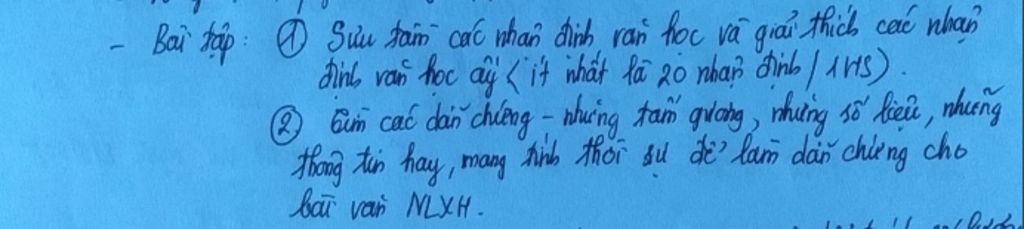 - Bài tập: ① Sưu tầm các nhận định văn học và giải thích các nhận
định văn học ấy (ít nhất là 20 nhận định / 1HS).
② Tìm các dẫn chứng - những tấm gương, những số liệu, những
thông tin hay, mang tính thời sự để làm dẫn chứng cho
bài văn NLXH.